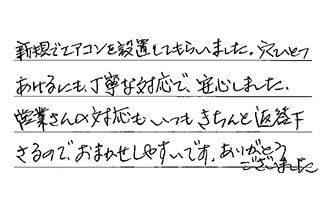 新規でエアコンを設置してもらいました。穴ひとつ
あけるにも、丁寧な対応で、安心しました。
営業さんの対応もいつもきちんと返答下
さるので、おまかせしやすいです。ありがとう
ございました